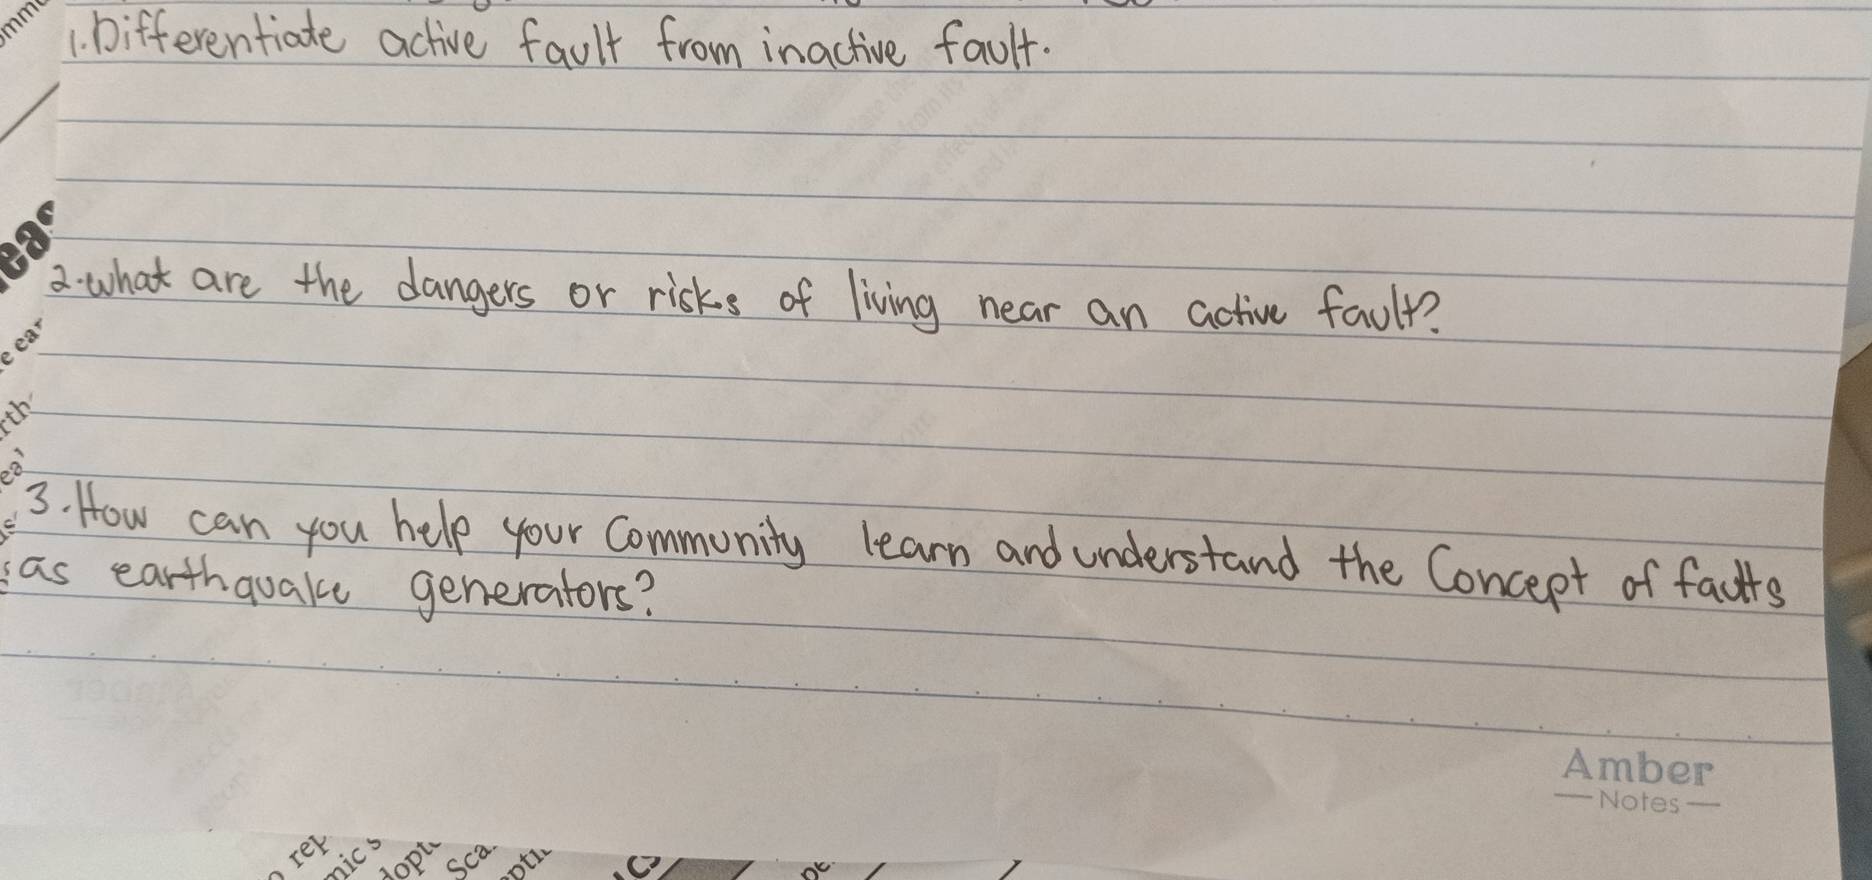 1. Differentiate active fault from inactive fault.
2. what are the dangers or risks of living near an active fault?
3. How can you help your Community learn and understand the Concept of faults
as earthquake generators?
Amber
Notes